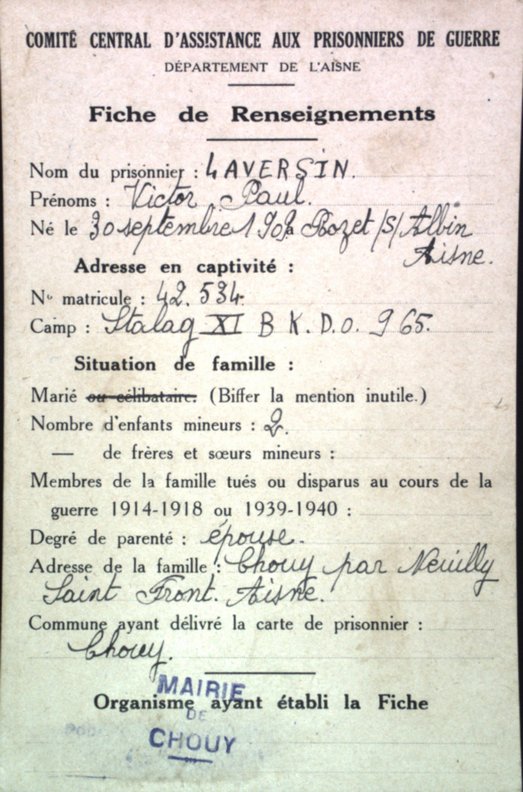 COMITÉ CENTRAL D'ASSISTANCE AUX PRISONNIERS DE GUERRE
DÉPARTEMENT DE L'AISNE
Fiche de Renseignements
Nom du prisonnier : LAVERSIN.
Prénoms : Victor Paul.
Né le 30 septembre 190 à Rozet /S/ Albin
Aisne.
Adresse en captivité :
N° matricule : 42.534.
Camp : Stalag XI B K.D.O. 965.
Situation de famille :
Marié ou célibataire. (Biffer la mention inutile.)
Nombre d'enfants mineurs : 2.
— de frères et sœurs mineurs :
Membres de la famille tués ou disparus au cours de la
guerre 1914-1918 ou 1939-1940 :
Degré de parenté : épouse.
Adresse de la famille : Chouy par Neuilly
Saint Front. Aisne.
Commune ayant délivré la carte de prisonnier :
Chouy.
Organisme ayant établi la Fiche
MAIRIE
DE
CHOUY